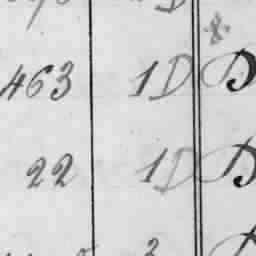 463 1D D
22 1D D